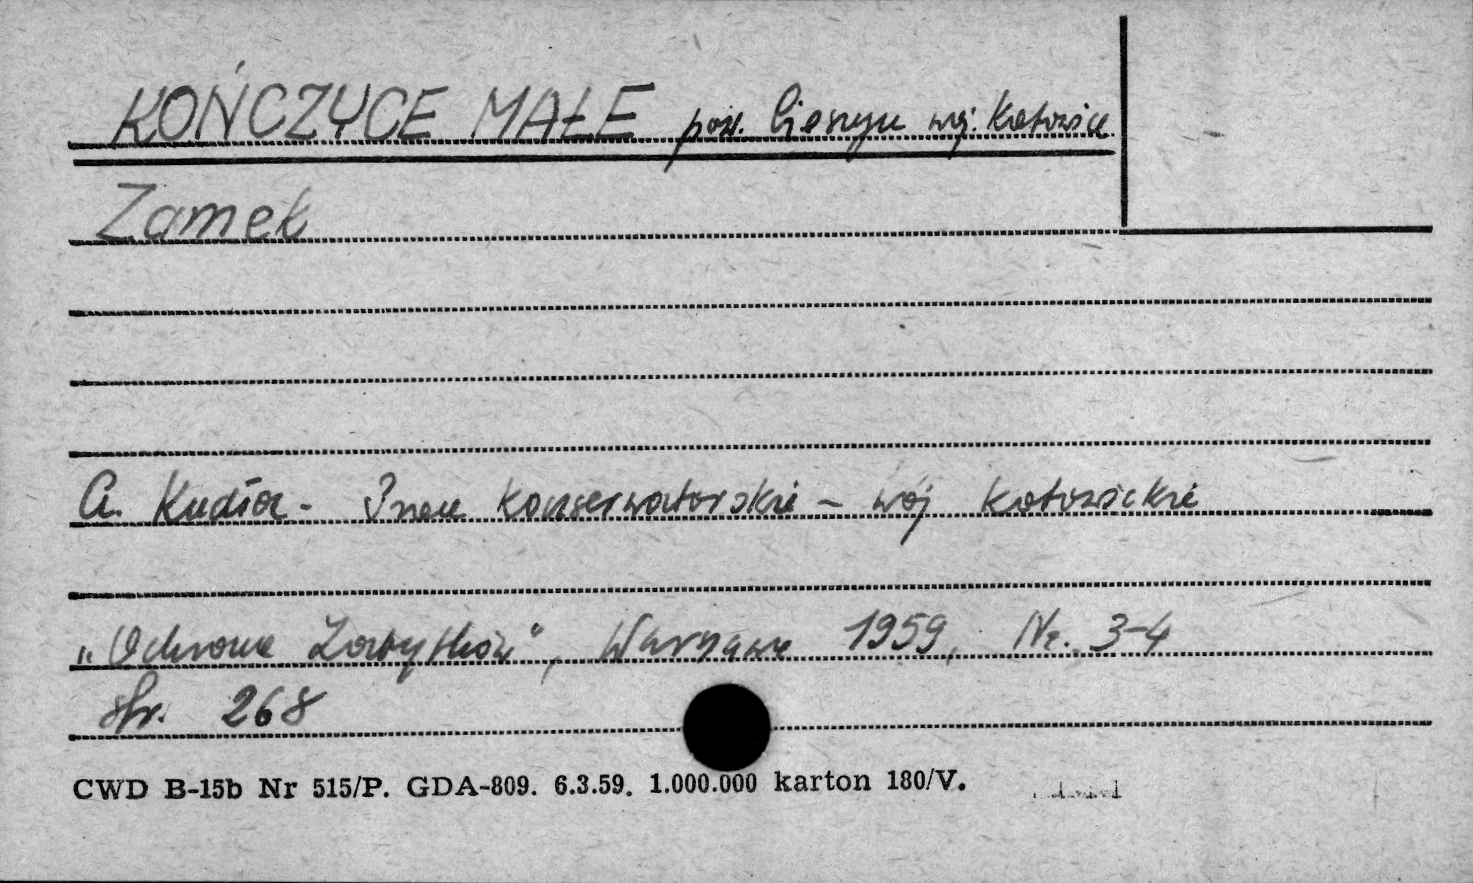 KOŃCZYCE MAŁE pow. Cieszyn woj. Katowice
Zamek
A. Kudła - Prace konserwatorskie - woj katowickie
„Ochrona Zabytków", Warszawa 1959, Nr. 3-4
str. 268
CWD B-15b Nr 515/P. GDA-809. 6.3.59. 1.000.000 karton 180/V.